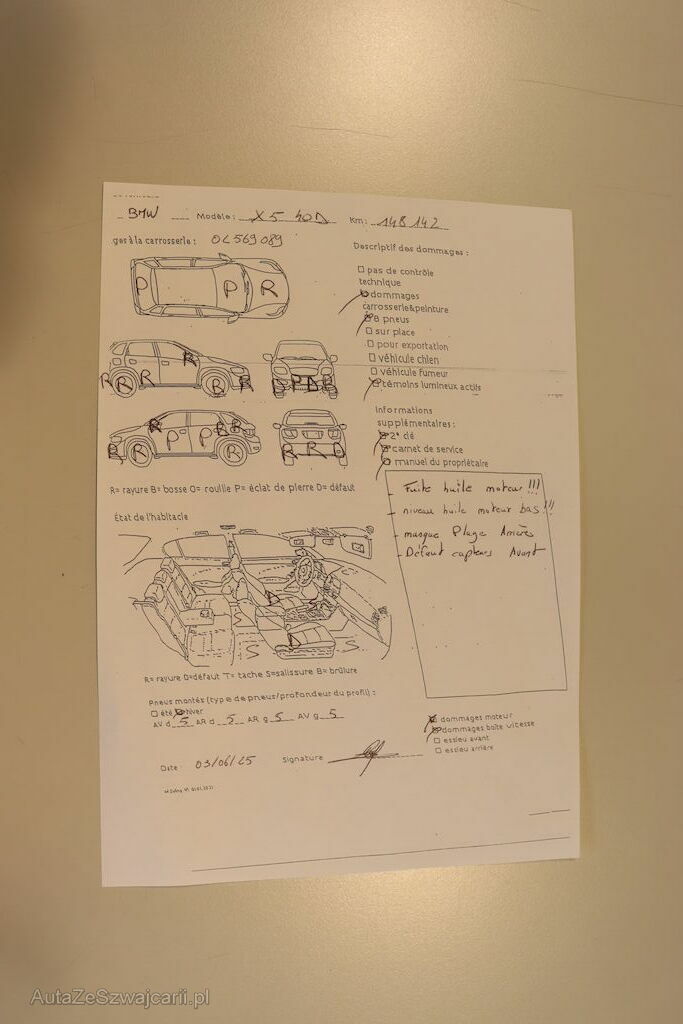 BMW Modèle: X5 40D Km: 148 142
ges à la carrosserie: 04569089
Descriptif des dommages:
pas de contrôle
technique
dommages
carrosserie&peinture
8 pneus
sur place
pour exportation
véhicule chien
véhicule fumeur
témoins lumineux actifs
P P R
R R R R R R
R P P R B
R R R
R R D
Informations
supplémentaires:
2e clé
carnet de service
manuel du propriétaire
R= rayure B= bosse O= rouille P= éclat de pierre D= défaut
- Fuite huile moteur !!!
- niveau huile moteur bas !!!
- masque Plage Arrière
- Défaut capteurs Avant
État de l'habitacle
S S S
R= rayure D=défaut T= tache S=salissure B= brûlure
Pneus montés (type de pneus/profondeur du profil):
été hiver
AV d 5 AR d 5 AR g 5 AV g 5
dommages moteur
dommages boîte vitesse
essieu avant
essieu arrière
Date: 03/06/25 Signature
AutaZeSzwajcarii.pl